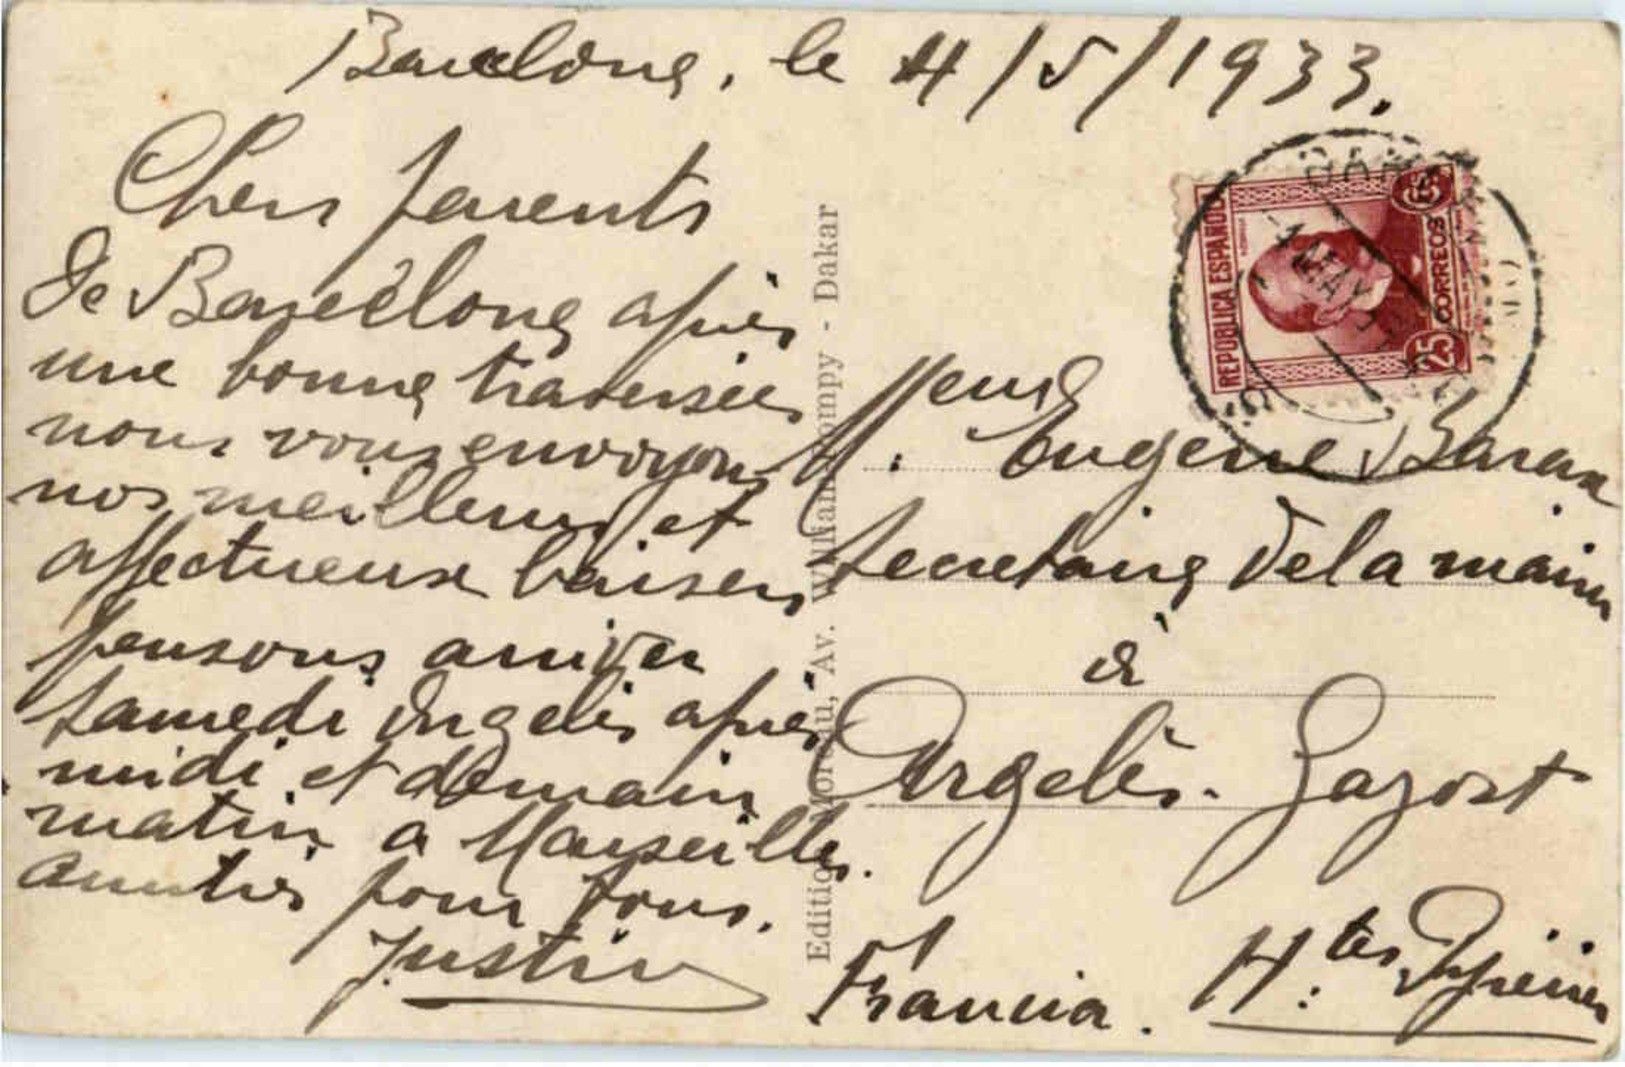 Barcelone, le 4/5/1933.
Chers parents
De Barcelone après
une bonne traversée
nous vous envoyons
nos meilleurs et
affectueux baisers
pensons arriver
samedi Argelès après
midi et demain
matin a Marseille.
amitiés pour tous.
Justin
Dakar
REPUBLICA ESPAÑOLA
CORREOS
25
4 MAY
M. Eugène
Secretaire de la mairie
à
Argelès-Gazost
Htes Pyrénées
Francia.